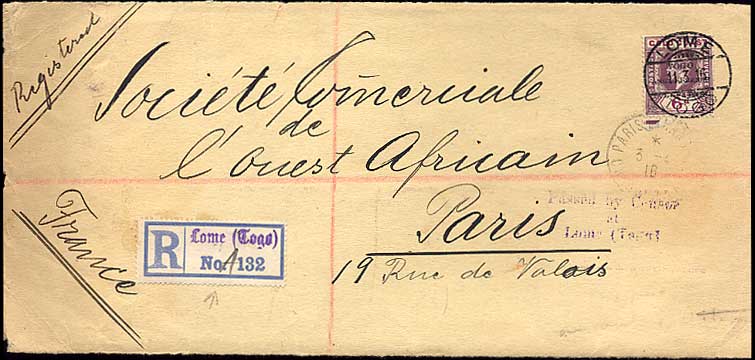 Registered
LOME
TOGO
11.3.16
Société Comerciale
de
l'Ouest Africain
PARIS
3
16
France
R
Lome (Togo)
No. A 132
Passed by Censor
at
Lome (Togo)
Paris
19 Rue de Valois